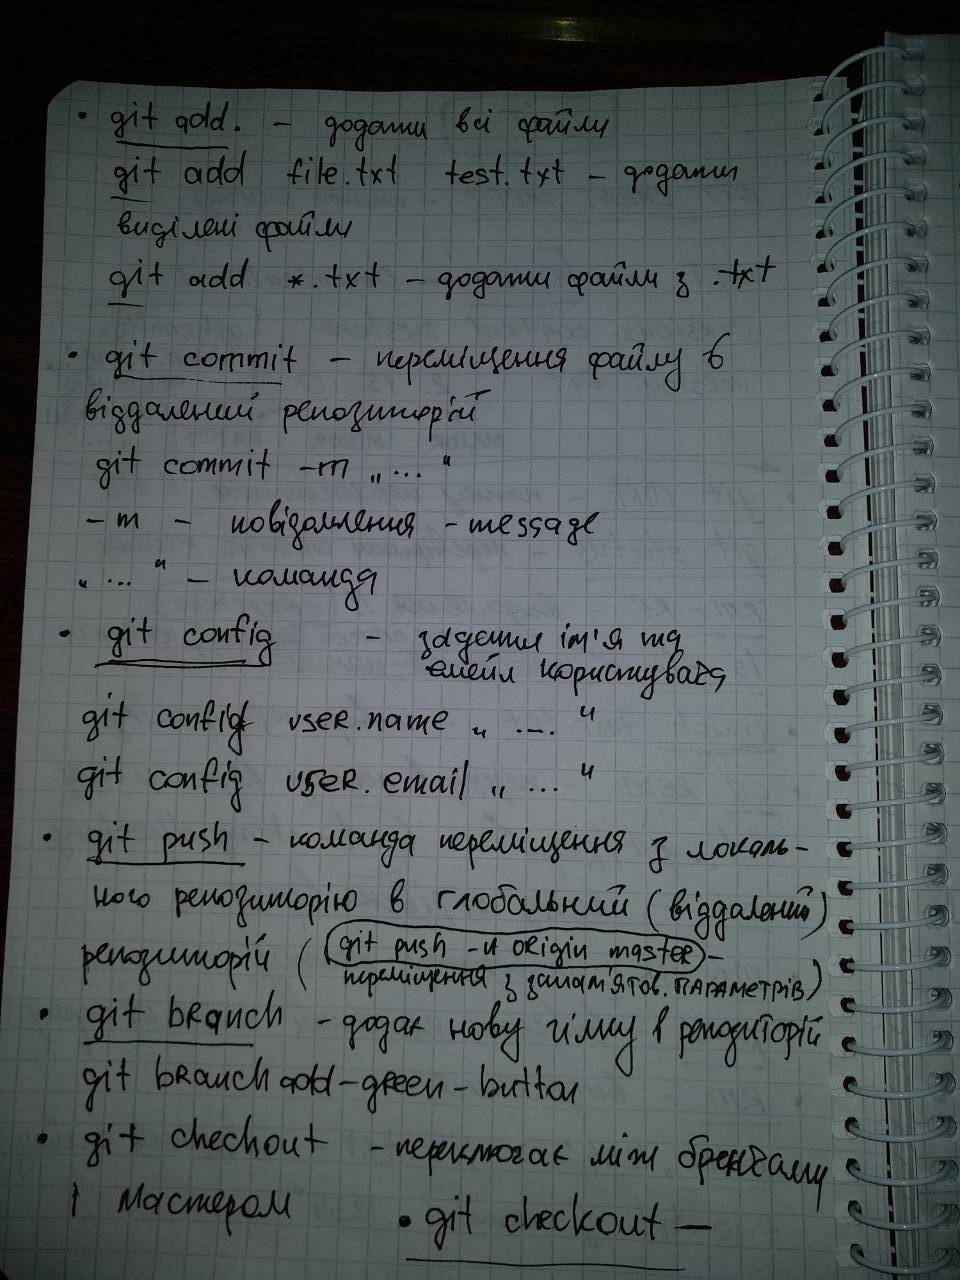 • git add. – додати всі файли
git add file.txt test.txt – додати
виділені файли
git add *.txt – додати файли з .txt
• git commit – переміщення файлу в
віддалений репозиторій
git commit -m „ ... “
-m – повідомлення - message
„ ... “ – команда
• git config – задати ім'я та
емейл користувача
git config user.name „ .... “
git config user.email „ ... “
• git push – команда переміщення з локаль-
ного репозиторію в глобальний (віддалений)
репозиторій (git push -u origin master –
переміщення з запам'ятов. параметрів)
• git branch – додає нову гілку в репозиторій
git branch add-green-button
• git chechout – переключає між бренчами
і мастером
• git checkout —